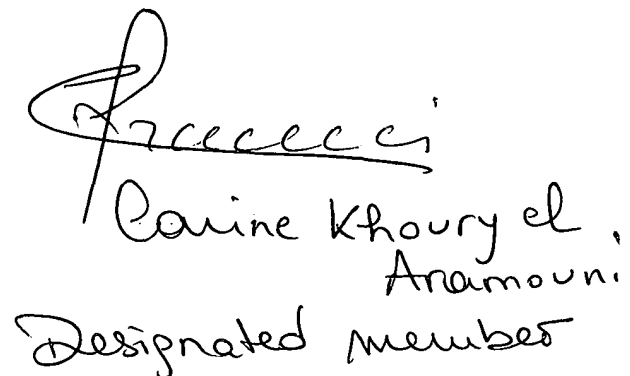 Carine Khoury el
Aramouni
Designated member